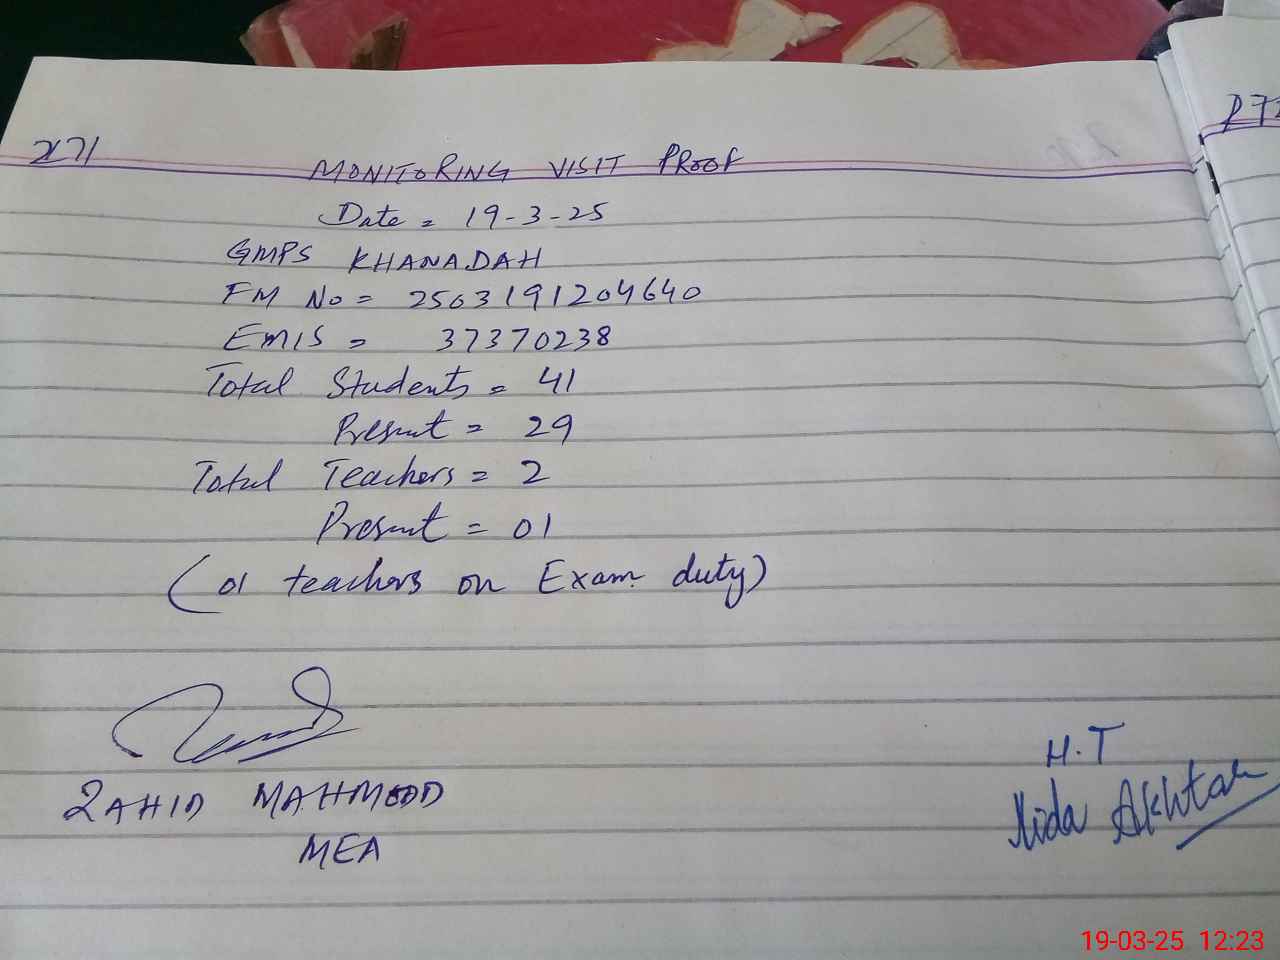 271
MONITORING VISIT PROOF
Date = 19-3-25
GMPS KHANADAH
FM No = 2503191204640
EMIS = 37370238
Total Students = 41
Present = 29
Total Teachers = 2
Present = 01
(01 teachers on Exam duty)
ZAHID MAHMOOD
MEA
H.T
Nida Akhtar
19-03-25 12:23